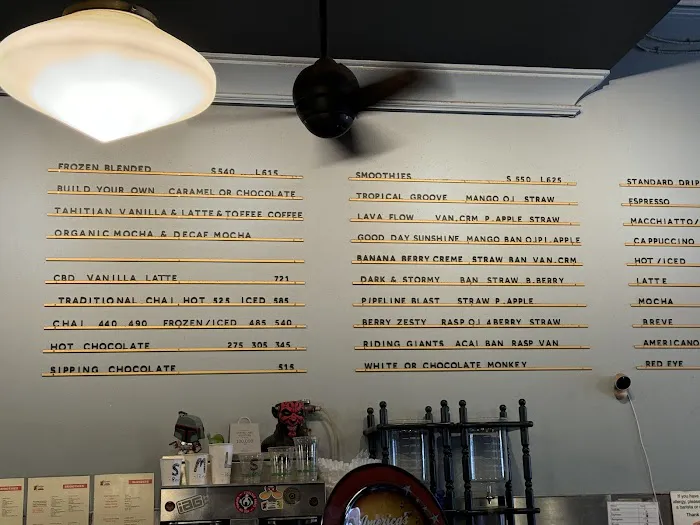 FROZEN BLENDED S540 L615
BUILD YOUR OWN CARAMEL OR CHOCOLATE
TAHITIAN VANILLA & LATTE & TOFFEE COFFEE
ORGANIC MOCHA & DECAF MOCHA
CBD VANILLA LATTE 721
TRADITIONAL CHAI HOT 525 ICED 585
CHAI 440 490 FROZEN/ICED 485 540
HOT CHOCOLATE 275 305 345
SIPPING CHOCOLATE 515
SMOOTHIES S 550 L625
TROPICAL GROOVE MANGO OJ STRAW
LAVA FLOW VAN.CRM P.APPLE STRAW
GOOD DAY SUNSHINE MANGO BAN OJ P1.APPLE
BANANA BERRY CREME STRAW BAN VAN.CRM
DARK & STORMY BAN STRAW B.BERRY
PIPELINE BLAST STRAW P.APPLE
BERRY ZESTY RASP OJ 4BERRY STRAW
RIDING GIANTS ACAI BAN RASP VAN
WHITE OR CHOCOLATE MONKEY
STANDARD DRIP
ESPRESSO
MACCHIATTO/
CAPPUCCINO
HOT/ICED
LATTE
MOCHA
BREVE
AMERICANO
RED EYE
S M L
If you have
allergy, please